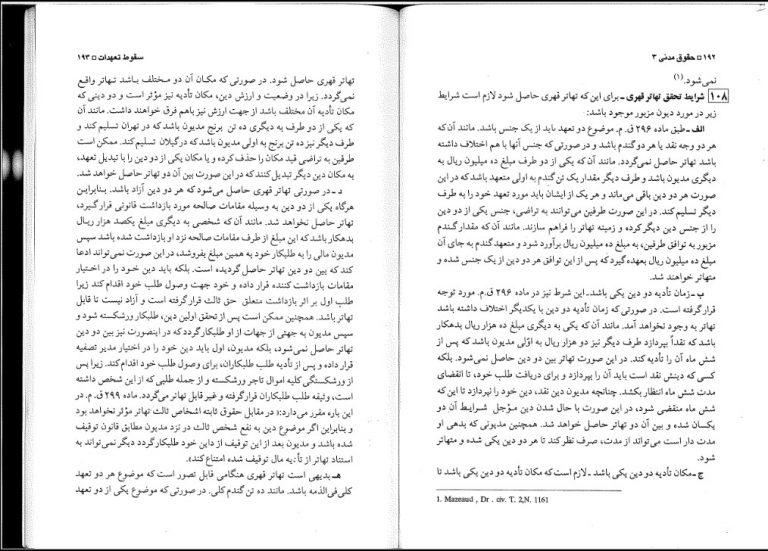 ۱۹۲ □ حقوق مدنی ۳
نمی‌شود.(۱)
۱۰۸ شرایط تحقق تهاتر قهری ـ برای این که تهاتر قهری حاصل شود لازم است شرایط
زیر در مورد دیون مزبور موجود باشد:
الف ـ طبق ماده ۲۹۶ ق. م. موضوع دو تعهد باید از یک جنس باشد. مانند آن که
هر دو وجه نقد یا هر دو گندم باشد و در صورتی که جنس آنها با هم اختلاف داشته
باشد تهاتر حاصل نمی‌گردد. مانند آن که یکی از دو طرف مبلغ ده میلیون ریال به
دیگری مدیون باشد و طرف دیگر مقدار یک تن گندم به اولی متعهد باشد که در این
صورت هر دو دین باقی می‌ماند و هر یک از ایشان باید مورد تعهد خود را به طرف
دیگر تسلیم کند. در این صورت طرفین می‌توانند به تراضی، جنس یکی از دو دین
را از جنس دین دیگر کرده و زمینه تهاتر را فراهم سازند. مانند آن که مقدار گندم
مزبور به توافق طرفین، به ده میلیون ریال برآورد شود و متعهد گندم به جای آن
مبلغ ده میلیون ریال بعهده گیرد که پس از این توافق هر دو دین از یک جنس شده و
متهاتر خواهند شد.
ب ـ زمان تأدیه دو دین یکی باشد. این شرط نیز در ماده ۲۹۶ ق.م. مورد توجه
قرار گرفته است. در صورتی که زمان تأدیه دو دین با یکدیگر اختلاف داشته باشد
تهاتر به وجود نخواهد آمد. مانند آن که یکی به دیگری مبلغ ده هزار ریال بدهکار
باشد که نقداً بپردازد طرف دیگر نیز دو هزار ریال به اوّلی مدیون باشد که پس از
شش ماه آن را تأدیه کند. در این صورت تهاتر بین دو دین حاصل نمی‌شود. بلکه
کسی که دینش نقد است باید آن را بپردازد و برای دریافت طلب خود، تا انقضای
مدت شش ماه انتظار بکشد. چنانچه مدیون دین نقد، دین خود را نپردازد تا این که
شش ماه منقضی شود، در این صورت با حال شدن دین مؤجل شرایط آن دو
یکسان شده و بین آن دو تهاتر حاصل خواهد شد. همچنین مدیونی که بدهی او
مدت دار است می‌تواند از مدت، صرف نظر کند تا هر دو دین یکی شده و متهاتر
شود.
ج ـ مکان تأدیه دو دین یکی باشد ـ لازم است که مکان تأدیه دو دین یکی باشد تا
1. Mazeaud , Dr . civ. T. 2,N. 1161
سقوط تعهدات □ ۱۹۳
تهاتر قهری حاصل شود. در صورتی که مکان آن دو مختلف باشد تهاتر واقع
نمی‌گردد. زیرا در وضعیت و ارزش دین، مکان تأدیه نیز مؤثر است و دو دینی که
مکان تأدیه آن مختلف باشد از جهت ارزش نیز باهم فرق خواهند داشت. مانند آن
که یکی از دو طرف به دیگری ده تن برنج مدیون باشد که در تهران تسلیم کند و
طرف دیگر نیز ده تن برنج به اولی مدیون باشد که در گیلان تسلیم کند. ممکن است
طرفین به تراضی قید مکان را حذف کرده و یا مکان یکی از دو دین را با تبدیل تعهد،
به مکان دین دیگر تبدیل کنند که در این صورت بین آن دو تهاتر حاصل خواهد شد.
د ـ در صورتی تهاتر قهری حاصل می‌شود که هر دو دین آزاد باشد. بنابراین
هرگاه یکی از دو دین به وسیله مقامات صالحه مورد بازداشت قانونی قرار گیرد،
تهاتر حاصل نخواهد شد. مانند آن که شخصی به دیگری مبلغ یکصد هزار ریال
بدهکار باشد که این مبلغ از طرف مقامات صالحه نزد او بازداشت شده باشد سپس
مدیون مالی را به طلبکار خود به همین مبلغ بفروشد، در این صورت نمی‌تواند ادعا
کند که بین دو دین تهاتر حاصل گردیده است. بلکه باید دین خود را در اختیار
مقامات بازداشت کننده قرار داده و خود جهت وصول طلب خود اقدام کند زیرا
طلب اول بر اثر بازداشت متعلق حق ثالث قرار گرفته است و آزاد نیست تا قابل
تهاتر باشد. همچنین ممکن است پس از تحقق اولین دین، طلبکار ورشکسته شود و
سپس مدیون به جهتی از جهات از او طلبکار گردد که در اینصورت نیز بین دو دین
تهاتر حاصل نمی‌شود، بلکه مدیون، اول باید دین خود را در اختیار مدیر تصفیه
قرار داده و پس از تأدیه طلب طلبکاران، برای وصول طلب خود اقدام کند. زیرا پس
از ورشکستگی کلیه اموال تاجر ورشکسته و از جمله طلبی که از این شخص داشته
است، وثیقه طلب طلبکاران قرار گرفته و غیر قابل تهاتر می‌گردد. ماده ۲۹۹ ق. م. در
این باره مقرر می‌دارد: «در مقابل حقوق ثابته اشخاص ثالث تهاتر مؤثر نخواهد بود
و بنابراین اگر موضوع دین به نفع شخص ثالث در نزد مدیون مطابق قانون توقیف
شده باشد و مدیون بعد از این توقیف از داین خود طلبکار گردد دیگر نمی‌تواند به
استناد تهاتر از تأدیه مال توقیف شده امتناع کند».
هـ ـ بدیهی است تهاتر قهری هنگامی قابل تصور است که موضوع هر دو تعهد
کلی فی‌الذمه باشد. مانند ده تن گندم کلی. در صورتی که موضوع یکی از دو تعهد